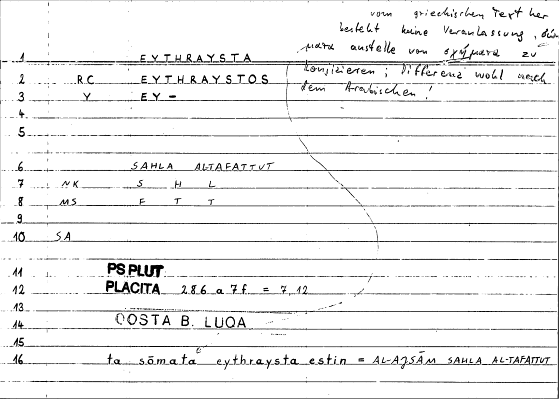 vom griechischen Text her
besteht keine Veranlassung, die
anstelle von zu
konjizieren; Differenz wohl nach
dem Arabischen!
1 EYTHRAYSTA
2 RC EYTHRAYSTOS
3 Y EY-
4
5
6 SAHLA ALTAFATTUT
7 NK S H L
8 MS F T T
9
10 SA
11 PS PLUT
12 PLACITA 286 a 7f. = 7,12
13
14 QOSTA B. LUQA
15
16 ta sōmata eythraysta estin = AL-AJSĀM SAHLA AL-TAFATTUT